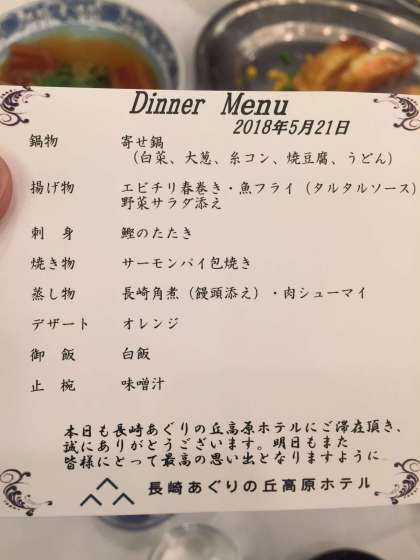 Dinner Menu
2018年5月21日
鍋物 寄せ鍋
（白菜、大葱、糸コン、焼豆腐、うどん）
揚げ物 エビチリ春巻き・魚フライ（タルタルソース）
野菜サラダ添え
刺 身 鰹のたたき
焼き物 サーモンパイ包焼き
蒸し物 長崎角煮（饅頭添え）・肉シューマイ
デザート オレンジ
御 飯 白飯
止 椀 味噌汁
本日も長崎あぐりの丘高原ホテルにご滞在頂き、
誠にありがとうございます。明日もまた
皆様にとって最高の思い出となりますように
長崎あぐりの丘高原ホテル